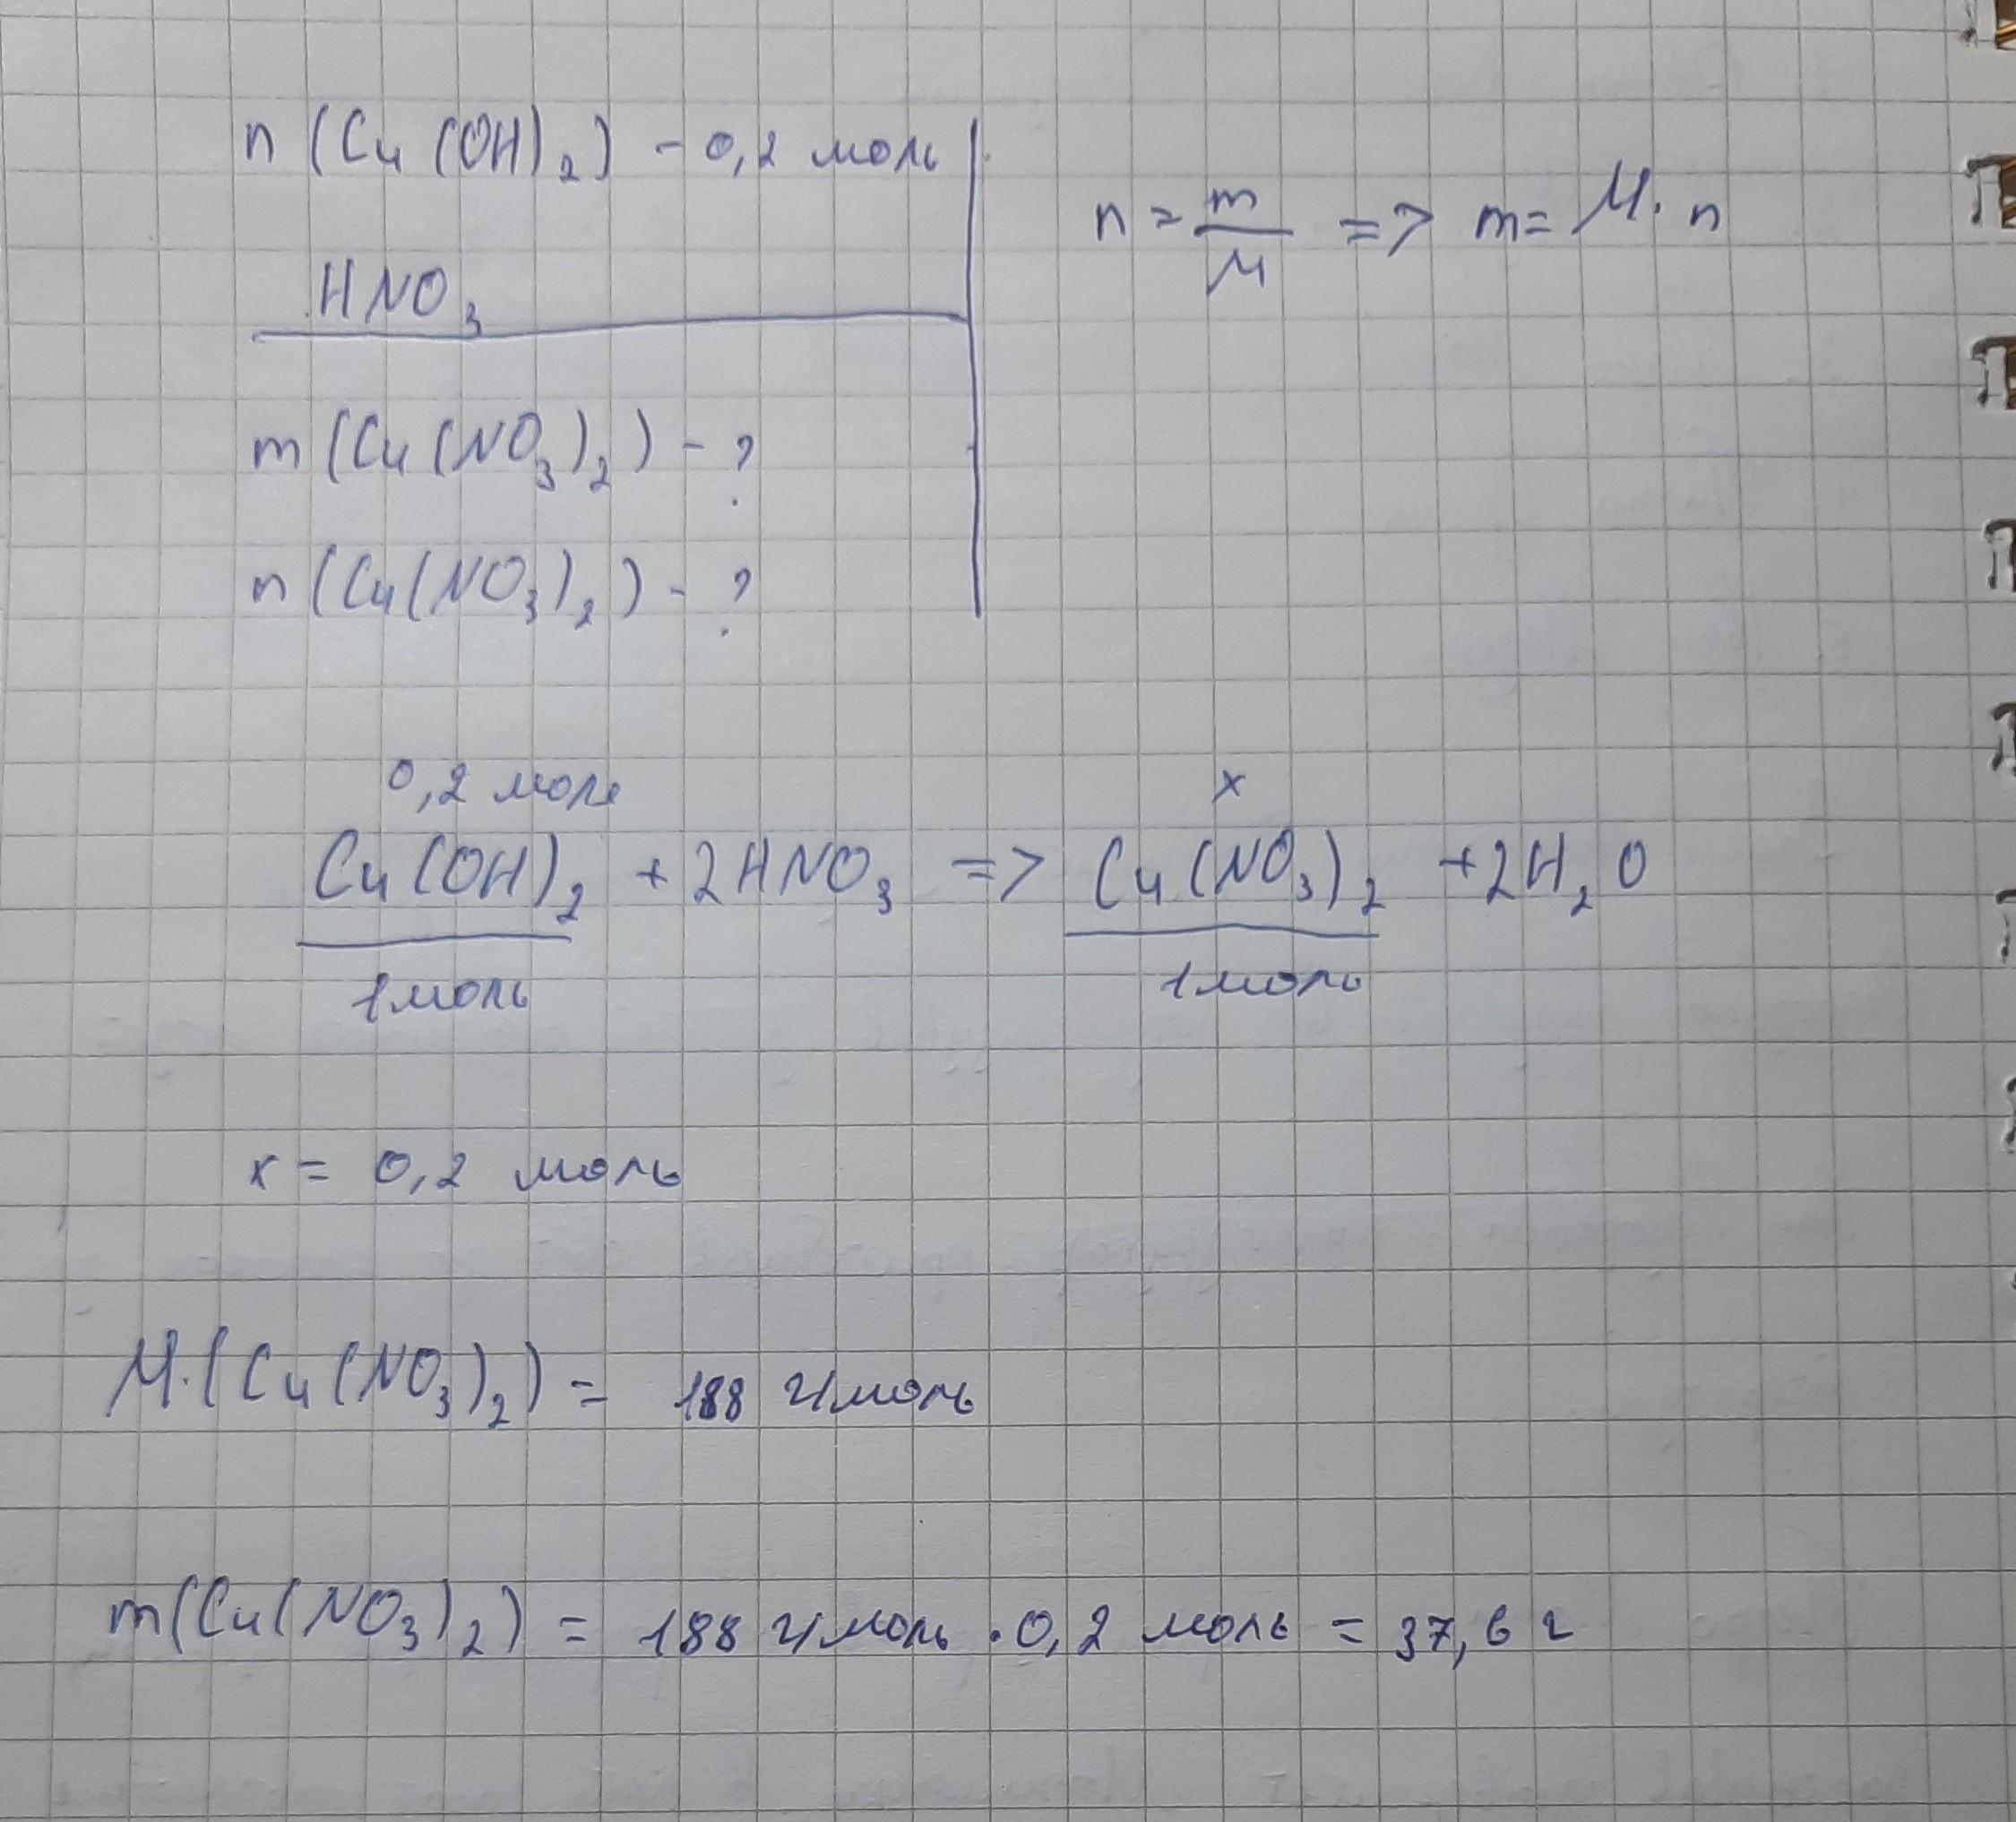 n (Cu (OH)₂) - 0,2 моль
HNO₃
m (Cu (NO₃)₂) - ?
n (Cu (NO₃)₂) - ?
n = m/M => m = M · n
0,2 моль
x
Cu (OH)₂ + 2HNO₃ => Cu (NO₃)₂ + 2H₂O
1 моль
1 моль
x = 0,2 моль
M (Cu (NO₃)₂) = 188 г/моль
m (Cu (NO₃)₂) = 188 г/моль · 0,2 моль = 37,6 г